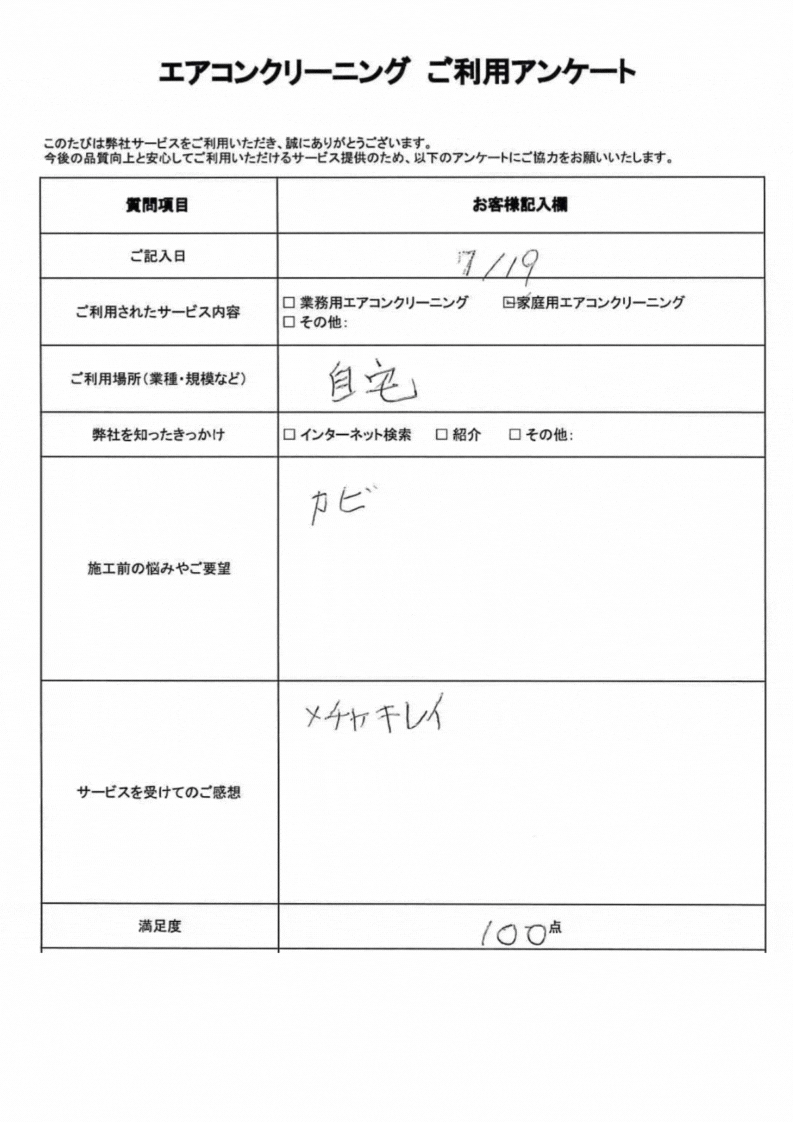 エアコンクリーニング ご利用アンケート
このたびは弊社サービスをご利用いただき、誠にありがとうございます。
今後の品質向上と安心してご利用いただけるサービス提供のため、以下のアンケートにご協力をお願いいたします。
質問項目 お客様記入欄
ご記入日 7/19
ご利用されたサービス内容 □ 業務用エアコンクリーニング ☑家庭用エアコンクリーニング
□ その他:
ご利用場所(業種・規模など) 自宅
弊社を知ったきっかけ □ インターネット検索 □ 紹介 □ その他:
施工前の悩みやご要望 カビ
サービスを受けてのご感想 メチャキレイ
満足度 100点